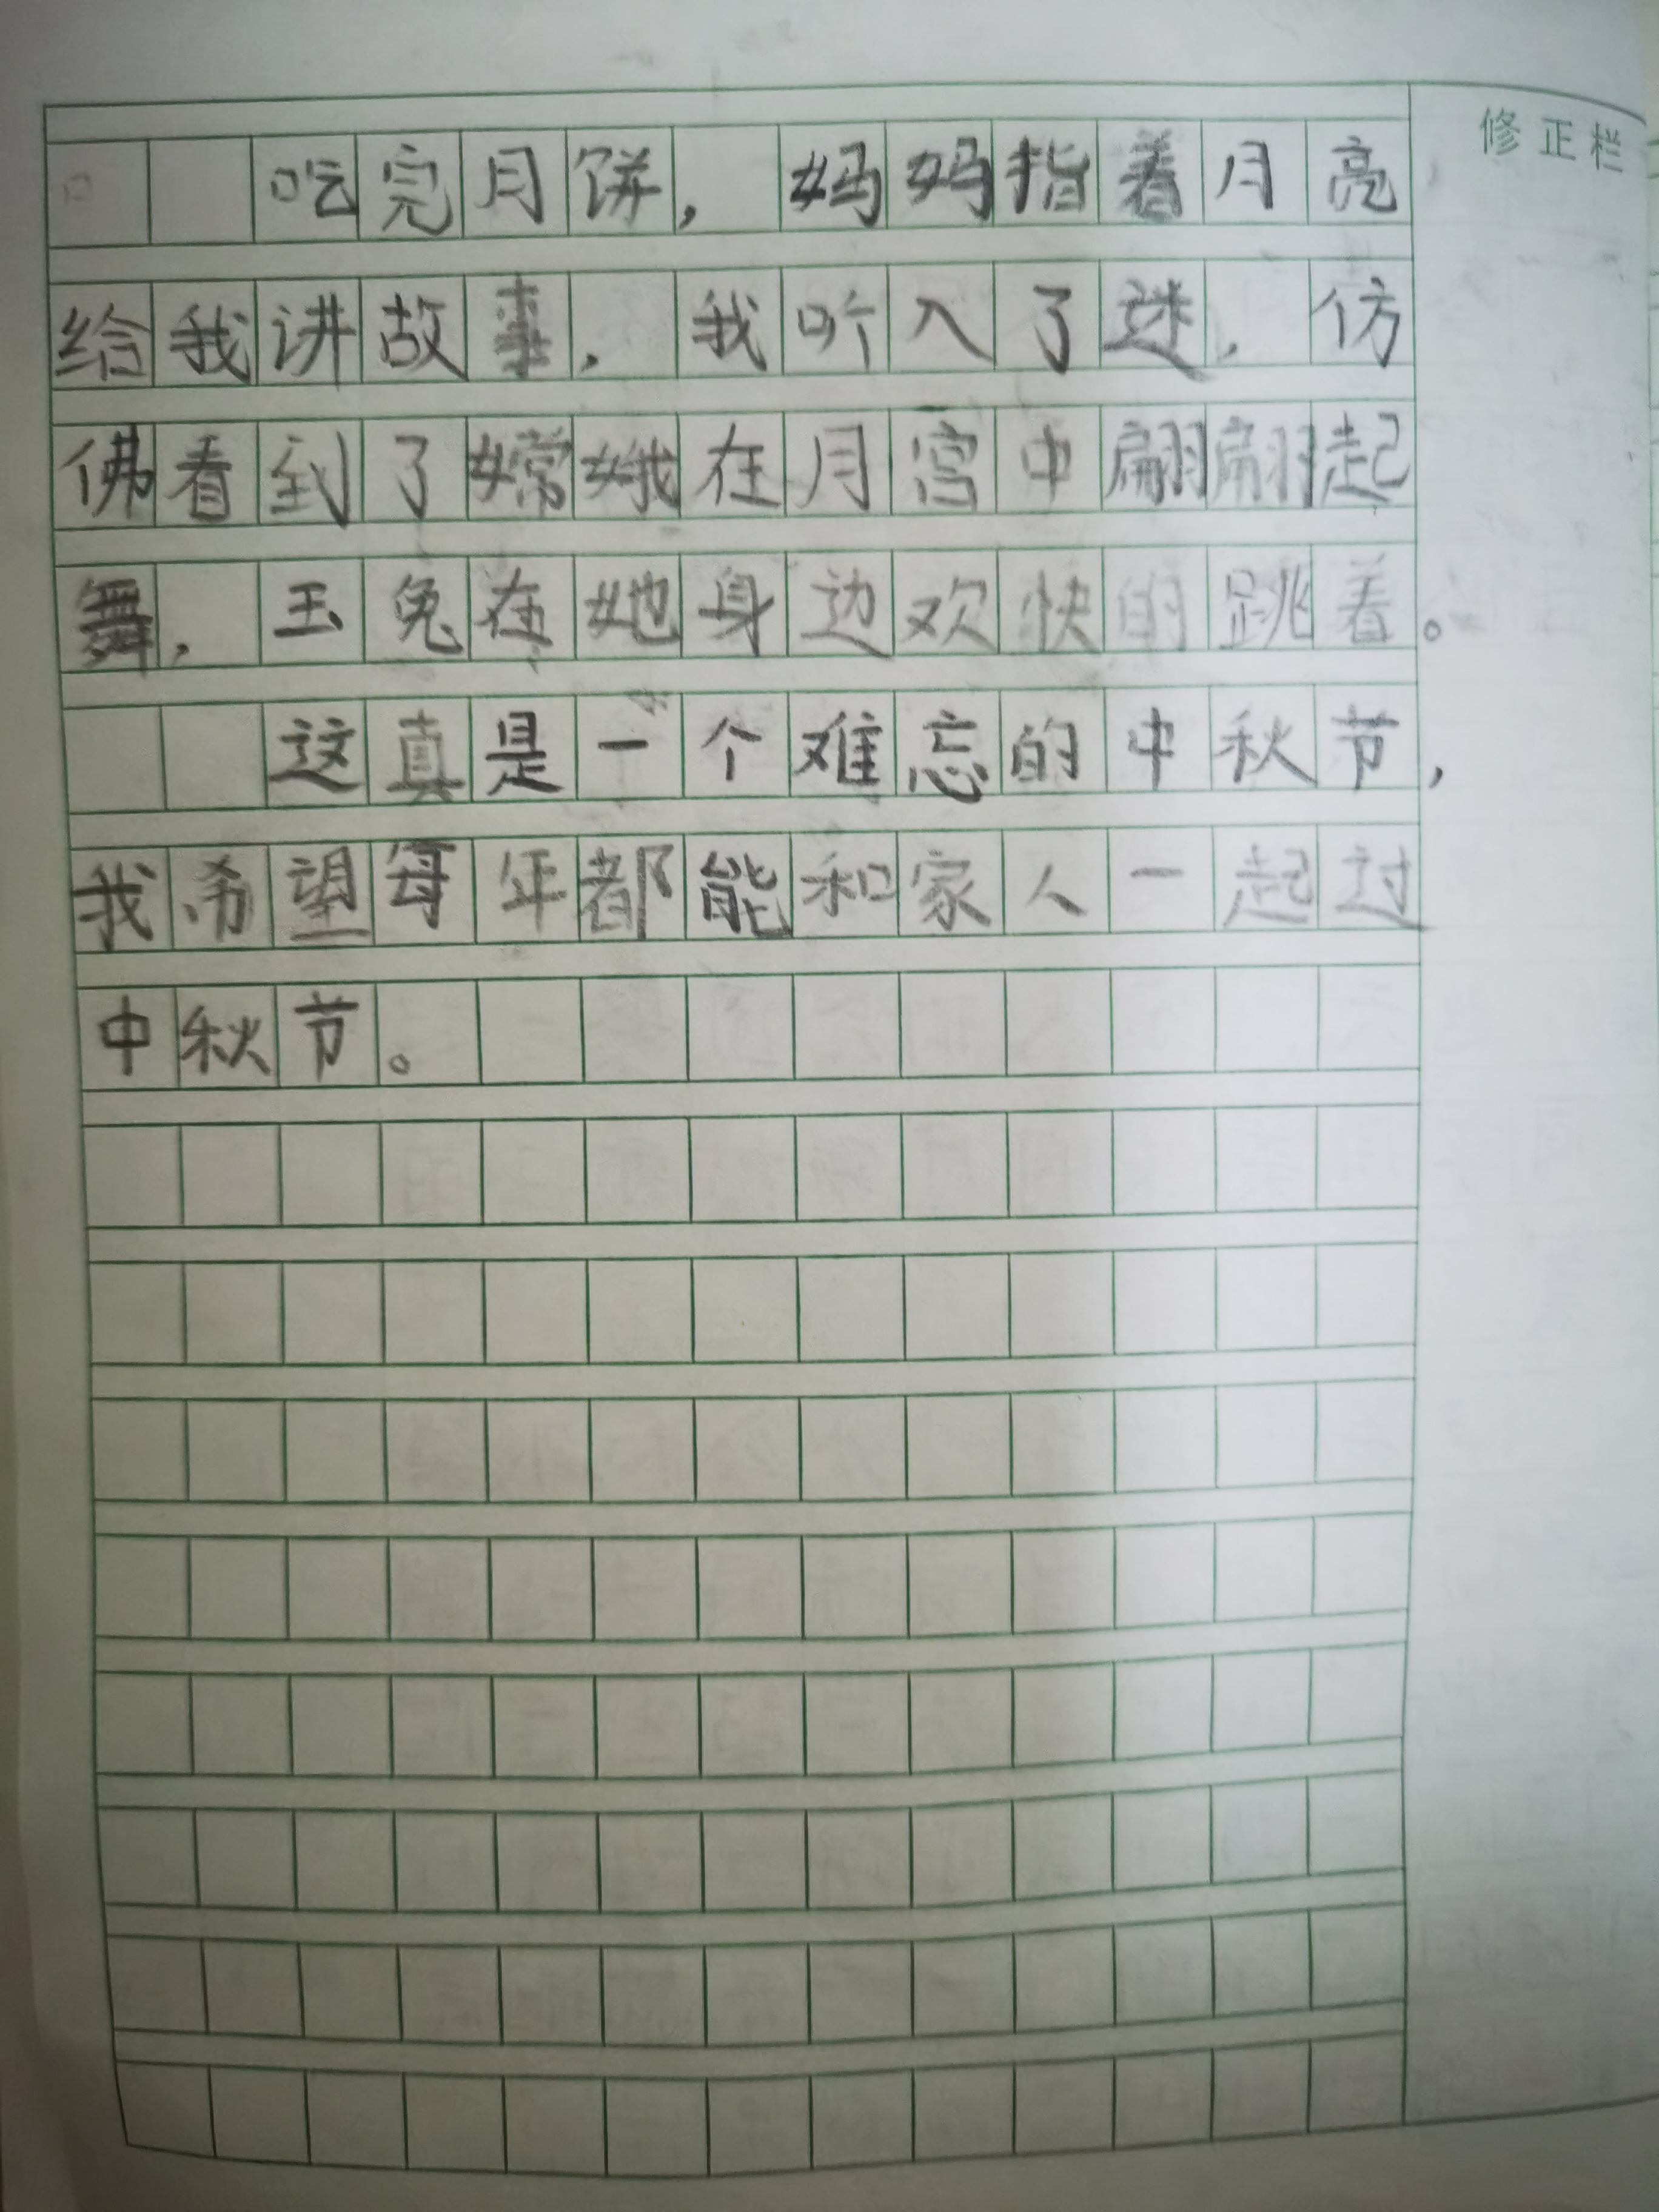 修正栏
吃完月饼，妈妈指着月亮
给我讲故事，我听入了迷，仿
佛看到了嫦娥在月宫中翩翩起
舞，玉兔在她身边欢快的跳着。
这真是一个难忘的中秋节，
我希望每年都能和家人一起过
中秋节。